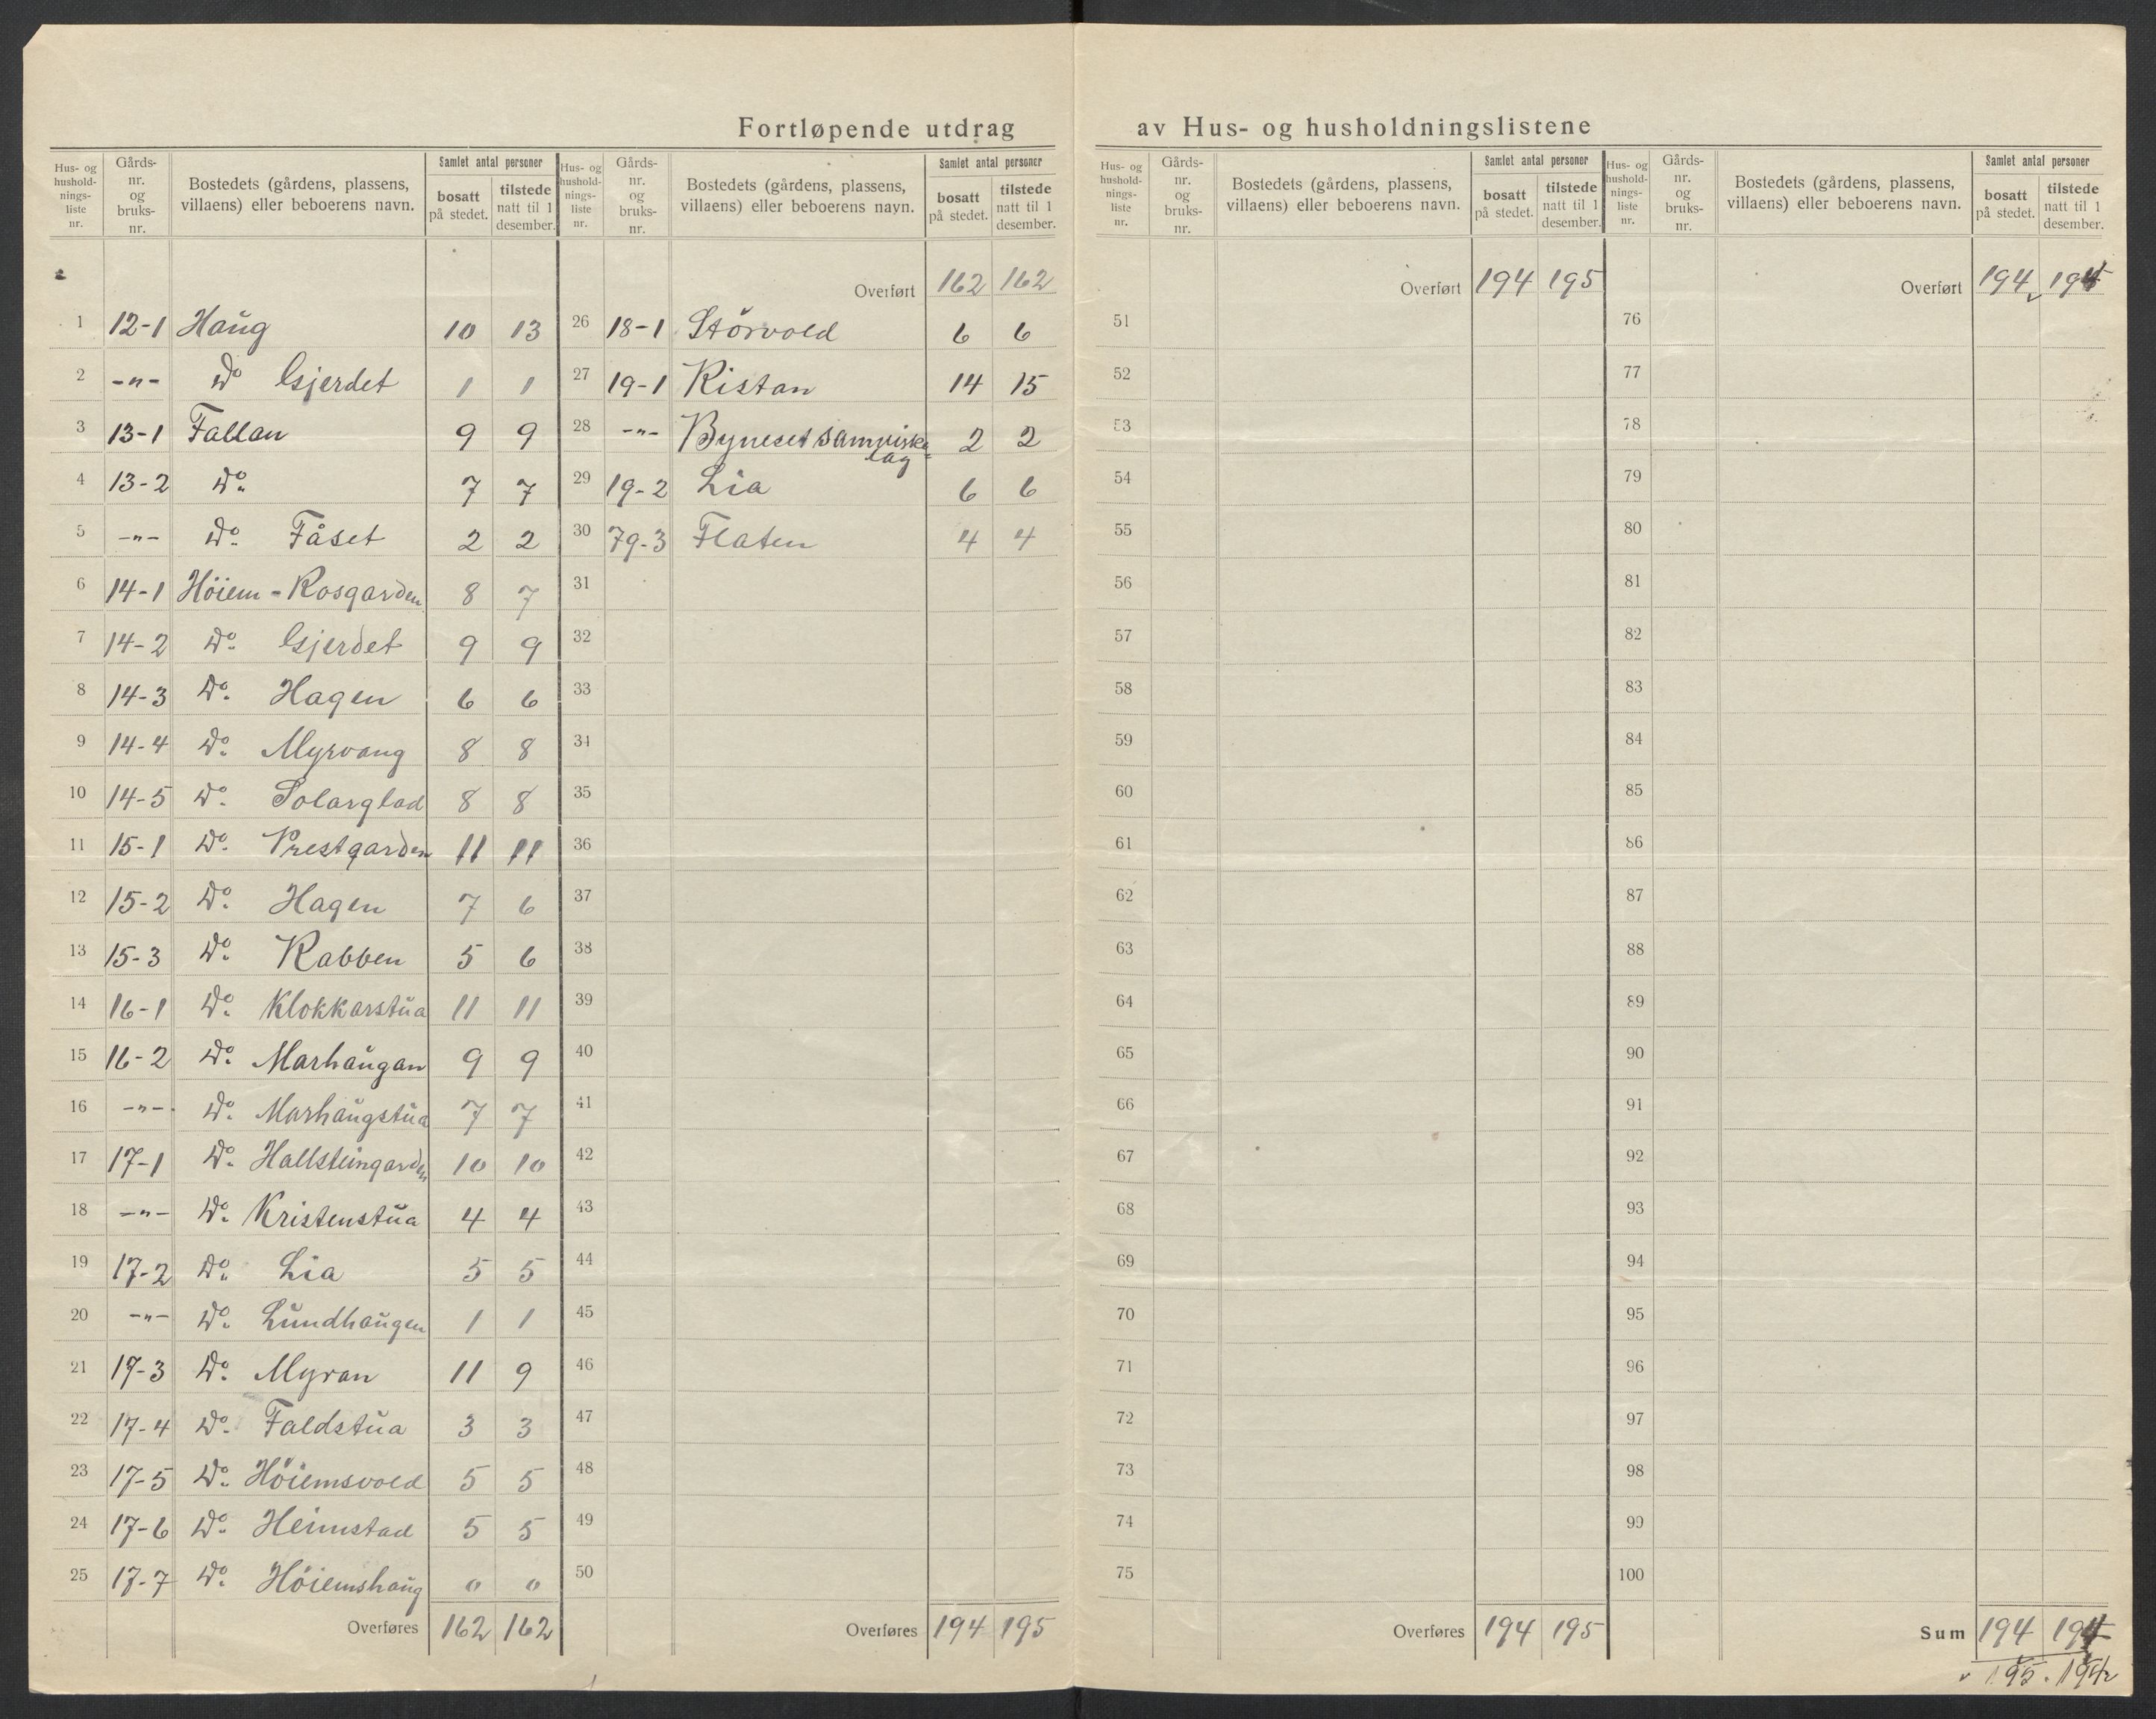 Fortløpende utdrag av Hus- og husholdningslistene
Hus- og hushold-nings-liste nr. Gårds-nr. og bruks-nr. Bostedets (gårdens, plassens, villaens) eller beboerens navn. Samlet antal personer bosatt på stedet. tilstede natt til 1 desember.
1 12-1 Haug 10 13
2 -"- Do Gjerdet 1 1
3 13-1 Fallan 9 9
4 13-2 Do 7 7
5 -"- Do Fåset 2 2
6 14-1 Höiem - Rosgarden 8 7
7 14-2 Do Gjerdet 9 9
8 14-3 Do Hagen 6 6
9 14-4 Do Myrvang 8 8
10 14-5 Do Solarglad 8 8
11 15-1 Do Prestgarden 11 11
12 15-2 Do Hagen 7 6
13 15-3 Do Rabben 5 6
14 16-1 Do Klokkarstua 11 11
15 16-2 Do Marhaugan 9 9
16 -"- Do Marhaugstua 7 7
17 17-1 Do Hallsteingarden 10 10
18 -"- Do Kristenstua 4 4
19 17-2 Do Lia 5 5
20 -"- Do Lundhaugen 1 1
21 17-3 Do Myran 11 9
22 17-4 Do Faldstua 3 3
23 17-5 Do Höiemsvold 5 5
24 17-6 Do Heimstad 5 5
25 17-7 Do Höiemshaug 0 0
Overføres 162 162
Hus- og hushold-nings-liste nr. Gårds-nr. og bruks-nr. Bostedets (gårdens, plassens, villaens) eller beboerens navn. Samlet antal personer bosatt på stedet. tilstede natt til 1 desember.
Overført 162 162
26 18-1 Storvold 6 6
27 19-1 Ristan 14 15
28 -"- Byneset samvirke-
lag 2 2
29 19-2 Lia 6 6
30 79-3 Flaten 4 4
31
32
33
34
35
36
37
38
39
40
41
42
43
44
45
46
47
48
49
50
Overføres 194 195
Hus- og hushold-nings-liste nr. Gårds-nr. og bruks-nr. Bostedets (gårdens, plassens, villaens) eller beboerens navn. Samlet antal personer bosatt på stedet. tilstede natt til 1 desember.
Overført 194 195
51
52
53
54
55
56
57
58
59
60
61
62
63
64
65
66
67
68
69
70
71
72
73
74
75
Overføres 194 195
Hus- og hushold-nings-liste nr. Gårds-nr. og bruks-nr. Bostedets (gårdens, plassens, villaens) eller beboerens navn. Samlet antal personer bosatt på stedet. tilstede natt til 1 desember.
Overført 194
76
77
78
79
80
81
82
83
84
85
86
87
88
89
90
91
92
93
94
95
96
97
98
99
100
Sum 194 194
195